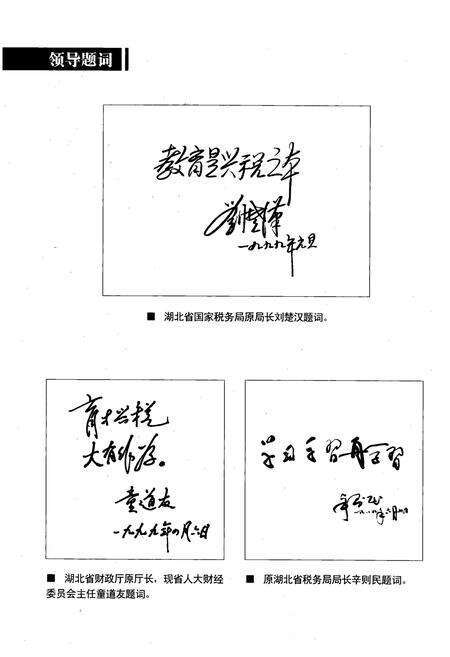 领导题词
教育是兴税之本
刘楚汉
一九九九年元旦
■ 湖北省国家税务局原局长刘楚汉题词。
育才兴税
大有作为。
童道友
一九九九年四月六日
■ 湖北省财政厅原厅长，现省人大财经
委员会主任童道友题词。
■ 原湖北省税务局局长辛则民题词。